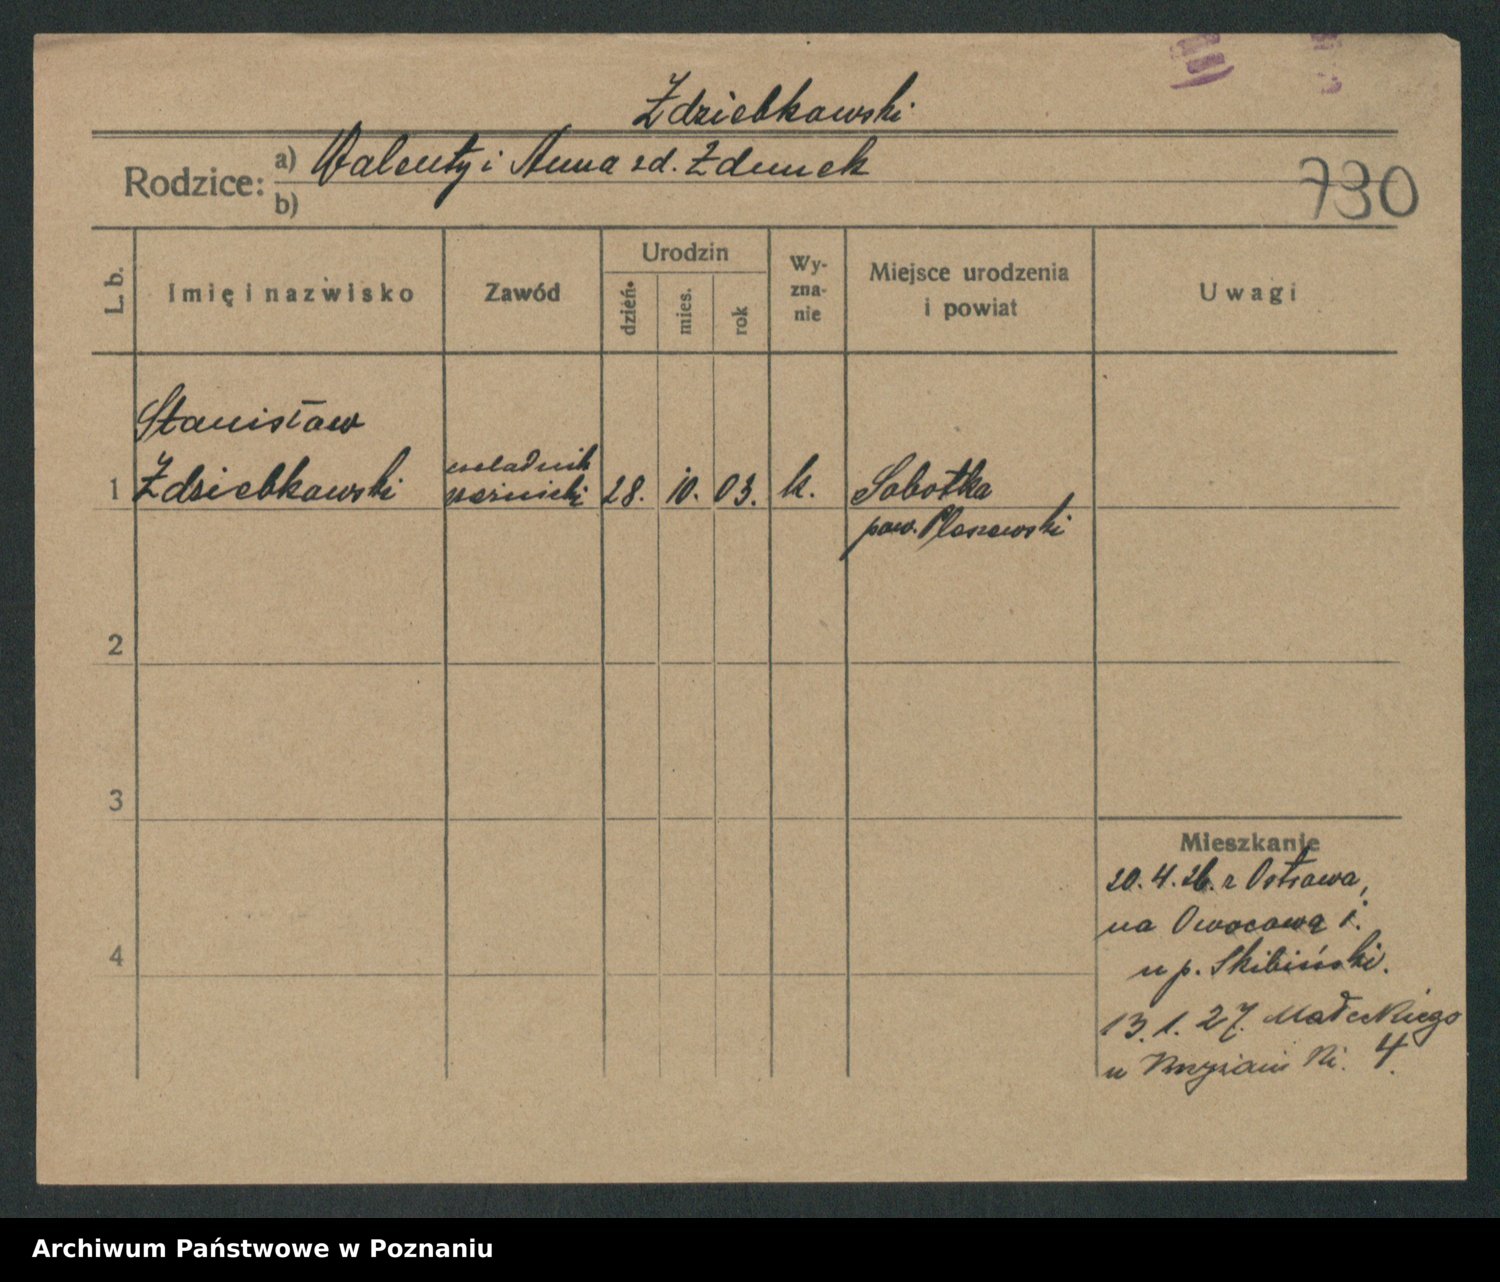 Zdziebkowski
Rodzice: a) Walenty i Anna zd. Zdunek
b)
730
L. b.
Imię i nazwisko
Zawód
Urodzin
dzień
mies.
rok
Wy-
zna-
nie
Miejsce urodzenia
i powiat
Uwagi
Stanisław
1 Zdziebkowski
czeladnik
rzeźnicki
28. 10. 03. k. Sobótka
pow. Pleszewski
2
3
4
Mieszkanie
20. 4. 26. z Ostrowa,
na Owocową
u p. Skibiński.
13. 1. 27. Małeckiego
u 4.
Archiwum Państwowe w Poznaniu